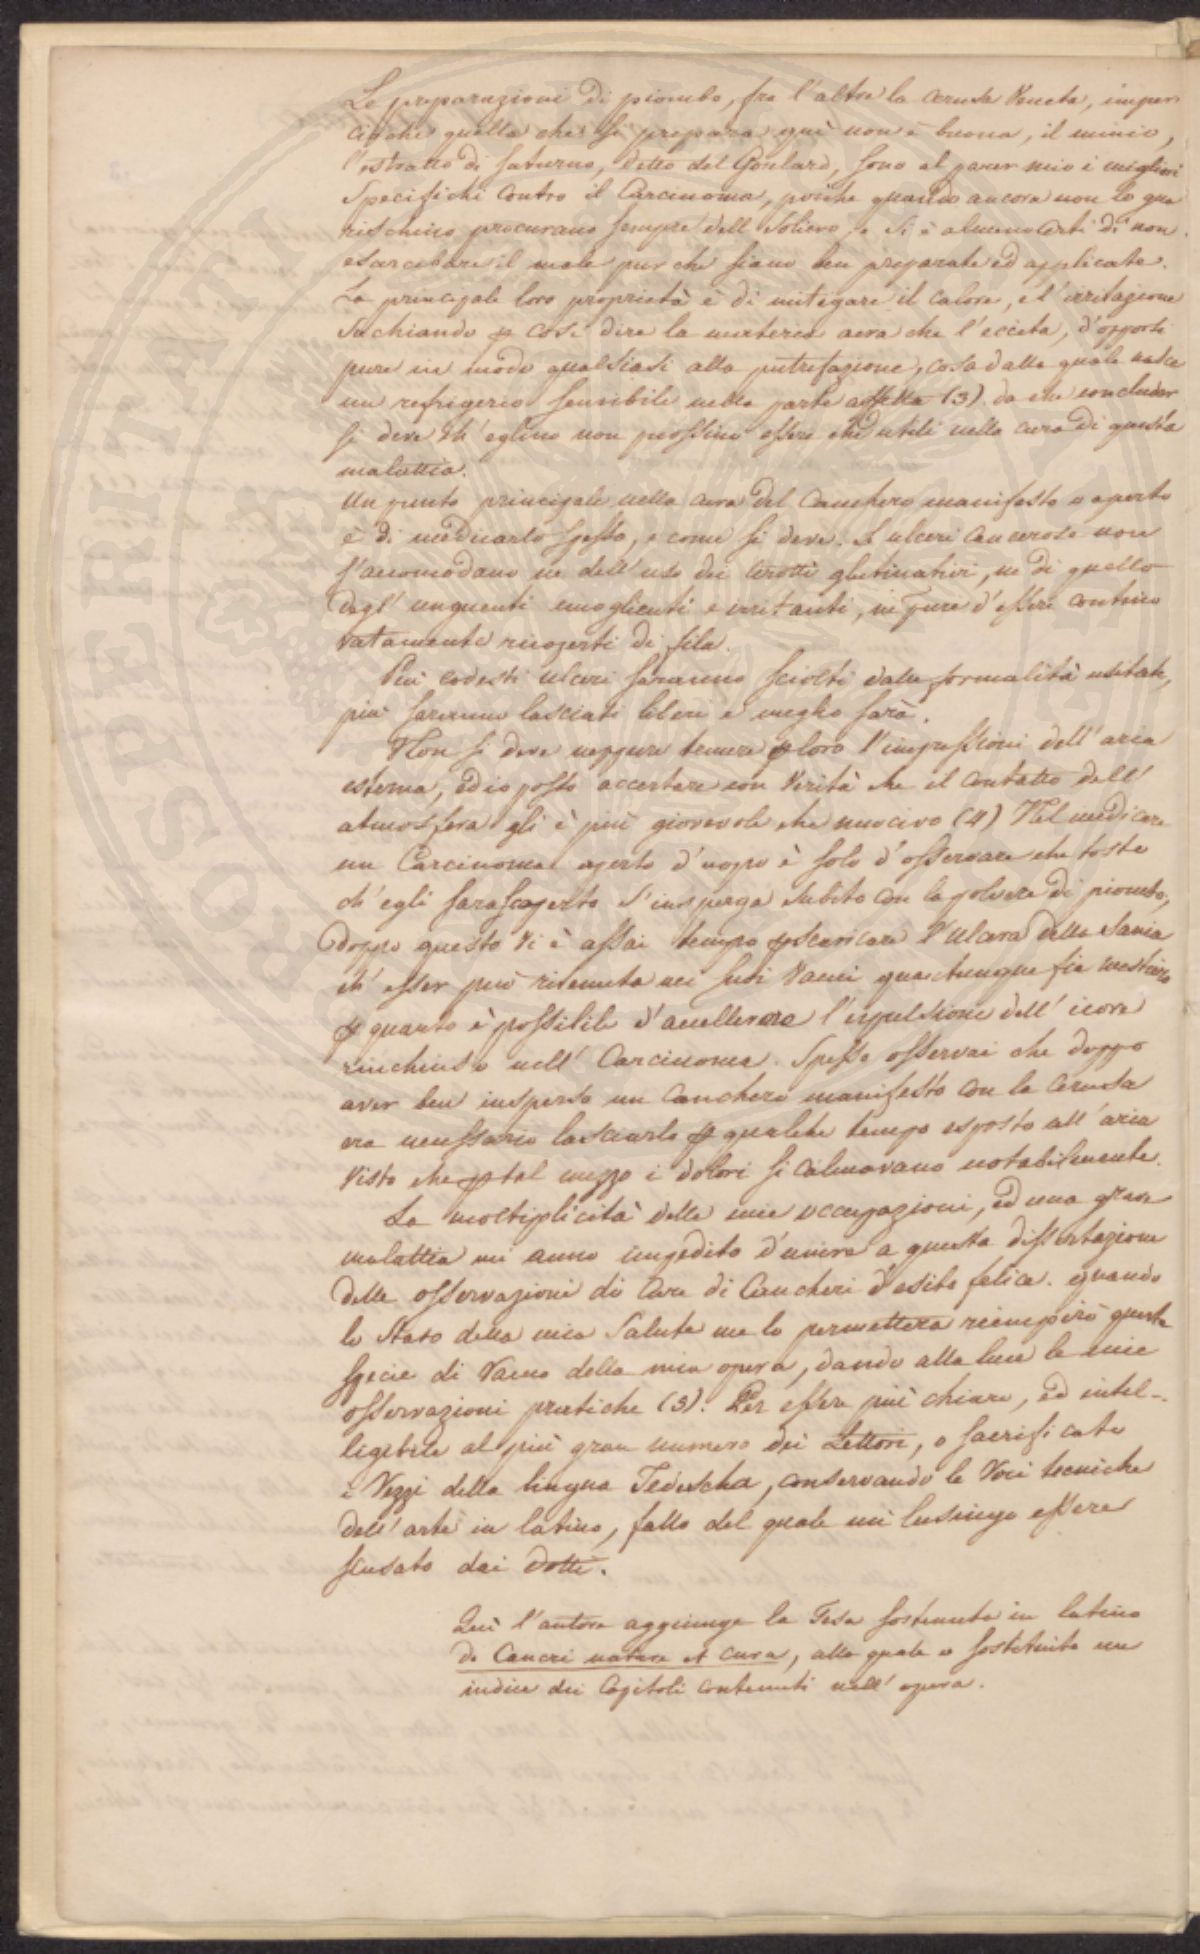 Le preparazioni di piombo, fra l'altre la cerusa Veneta, imper
ciocche quella che si prepara quì non è buona, il minio,
l'estratto di saturno, detto del Goulard, sono al parer mio i migliori
specifichi contro il Carcinoma, poiche quando ancora non lo gua
rischino procurano sempre dell solievo, e si è almeno certi di non
esarcebare il male pur che siano ben preparate ed applicate.
La principale loro proprietà è di mitigare il calore, e l'irritazione
suchiando p così dire la materia acra che l'eccita, d'opporsi
pure in modo qualsiasi alla putrefazione, cosa dalla quale nasce
un refrigerio sensibile nella parte affetta (3) da che concluder
si deve ch'eglino non possino essere che utili nella cura di questa
malattia.
Un punto principale nella cura del Canchero manifesto o aperto
è di medicarlo spesso, e come si deve. L'ulceri cancerose non
s'accomodano ne dell'uso dei cerotti glutinativi, ne di quello
degl'unguenti emoglienti e irritanti, ne pure d'essere continuo
vatamente ricoperti di fila.
Più codesti ulceri saranno sciolti dalle formalità usitate,
più saranno lasciati liberi e meglio sarà.
Non si deve neppure temere p loro l'impressioni dell'aria
esterna, ed io posso accertare con verità che il contatto dell'
atmosfera gli è più giovevole che nuocivo (4) Nel medicare
un Carcinoma aperto d'uopo è solo d'osservare che tosto
ch'egli sarà scoperto s'insperga subito con la polvere di piombo,
doppo questo vi è assai tempo p scaricare l'ulcera della sania
ch'esser può ritenuta nei suoi vacui quantunque sia mestiero
p quanto è possibile d'accellerare l'espulsione dell'icore
rinchiuso nell'Carcinoma. Spesso osservai che doppo
aver ben insperso un Canchero manifesto con la cerusa
era necessario lasciarlo p qualche tempo esposto all'aria
visto che p tal mezzo i dolori si calmavano notabilmente.
La moltiplicità delle mie occupazioni, ed una grave
malattia mi anno impedito d'unire a questa dissertazione
delle osservazioni di cure di Cancheri d'esito felice. quando
lo stato della mia salute me lo permetterà riempirò questa
specie di vacuo della mia opera, dando alla luce le mie
osservazioni pratiche (3). Per essere più chiaro, ed intel-
ligibile al più gran numero dei Lettori, o sacrificato
i Vezzi della lingua Tedescha, conservando le voci tecniche
dell'arte in latino, fallo del quale mi lusingo essere
scusato dai dotti.
Quì l'autore aggiunge la Tesa sostenuta in latino
de Cancri natura et cura, alla quale o sostituito un
indice dei Capitoli contenuti nell'opera.